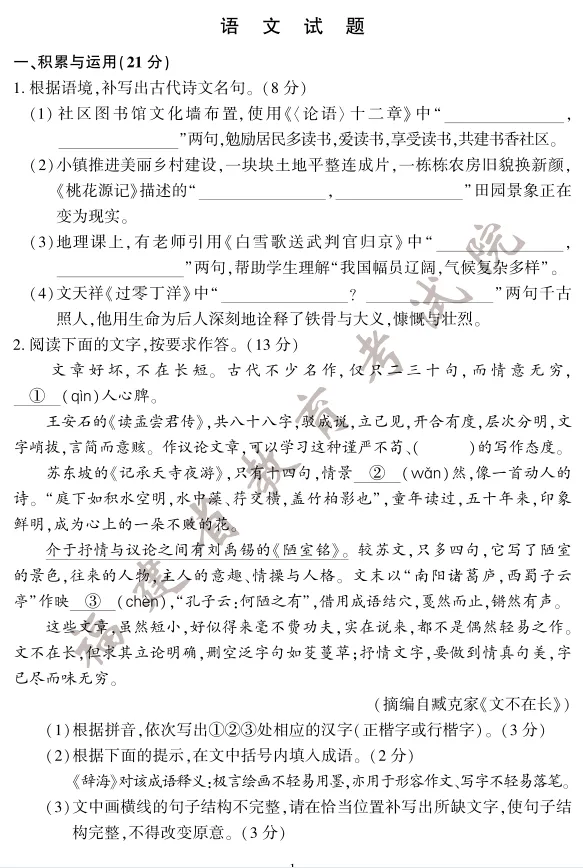 语 文 试 题
一、积累与运用(21分)
1. 根据语境,补写出古代诗文名句。(8分)
(1) 社区图书馆文化墙布置,使用《〈论语〉十二章》中“____________,
____________”两句,勉励居民多读书,爱读书,享受读书,共建书香社区。
(2) 小镇推进美丽乡村建设,一块块土地平整连成片,一栋栋农房旧貌换新颜,
《桃花源记》描述的“____________,____________”田园景象正在
变为现实。
(3) 地理课上,有老师引用《白雪歌送武判官归京》中“____________,
____________”两句,帮助学生理解“我国幅员辽阔,气候复杂多样”。
(4) 文天祥《过零丁洋》中“____________?____________”两句千古
照人,他用生命为后人深刻地诠释了铁骨与大义,慷慨与壮烈。
2. 阅读下面的文字,按要求作答。(13分)
文章好坏,不在长短。古代不少名作,仅只二三十句,而情意无穷,
①(qìn)人心脾。
王安石的《读孟尝君传》,共八十八字,驳成说,立己见,开合有度,层次分明,文
字峭拔,言简而意赅。作议论文章,可以学习这种谨严不苟、(    )的写作态度。
苏东坡的《记承天寺夜游》,只有十四句,情景 ②(wǎn)然,像一首动人的
诗。“庭下如积水空明,水中藻、荇交横,盖竹柏影也”,童年读过,五十年来,印象
鲜明,成为心上的一朵不败的花。
介于抒情与议论之间有刘禹锡的《陋室铭》。较苏文,只多四句,它写了陋室
的景色,往来的人物,主人的意趣、情操与人格。文末以“南阳诸葛庐,西蜀子云
亭”作映 ③(chèn),“孔子云:何陋之有”,借用成语结穴,戛然而止,锵然有声。
这些文章,虽然短小,好似得来毫不费功夫,实在说来,都不是偶然轻易之作。
文不在长,但求其立论明确,删空泛字句如芟蔓草;抒情文字,要做到情真句美,字
已尽而味无穷。
(摘编自臧克家《文不在长》)
(1) 根据拼音,依次写出①②③处相应的汉字(正楷字或行楷字)。(3分)
(2) 根据下面的提示,在文中括号内填入成语。(2分)
《辞海》对该成语释义:极言绘画不轻易用墨,亦用于形容作文、写字不轻易落笔。
(3) 文中画横线的句子结构不完整,请在恰当位置补写出所缺文字,使句子结
构完整,不得改变原意。(3分)
福建省教育考试院
1